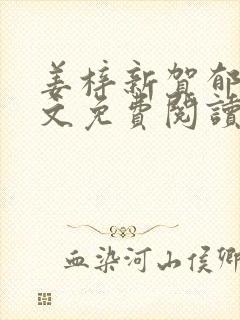 姜梓新賀郁
文免費閱讀
血染河山侯卿